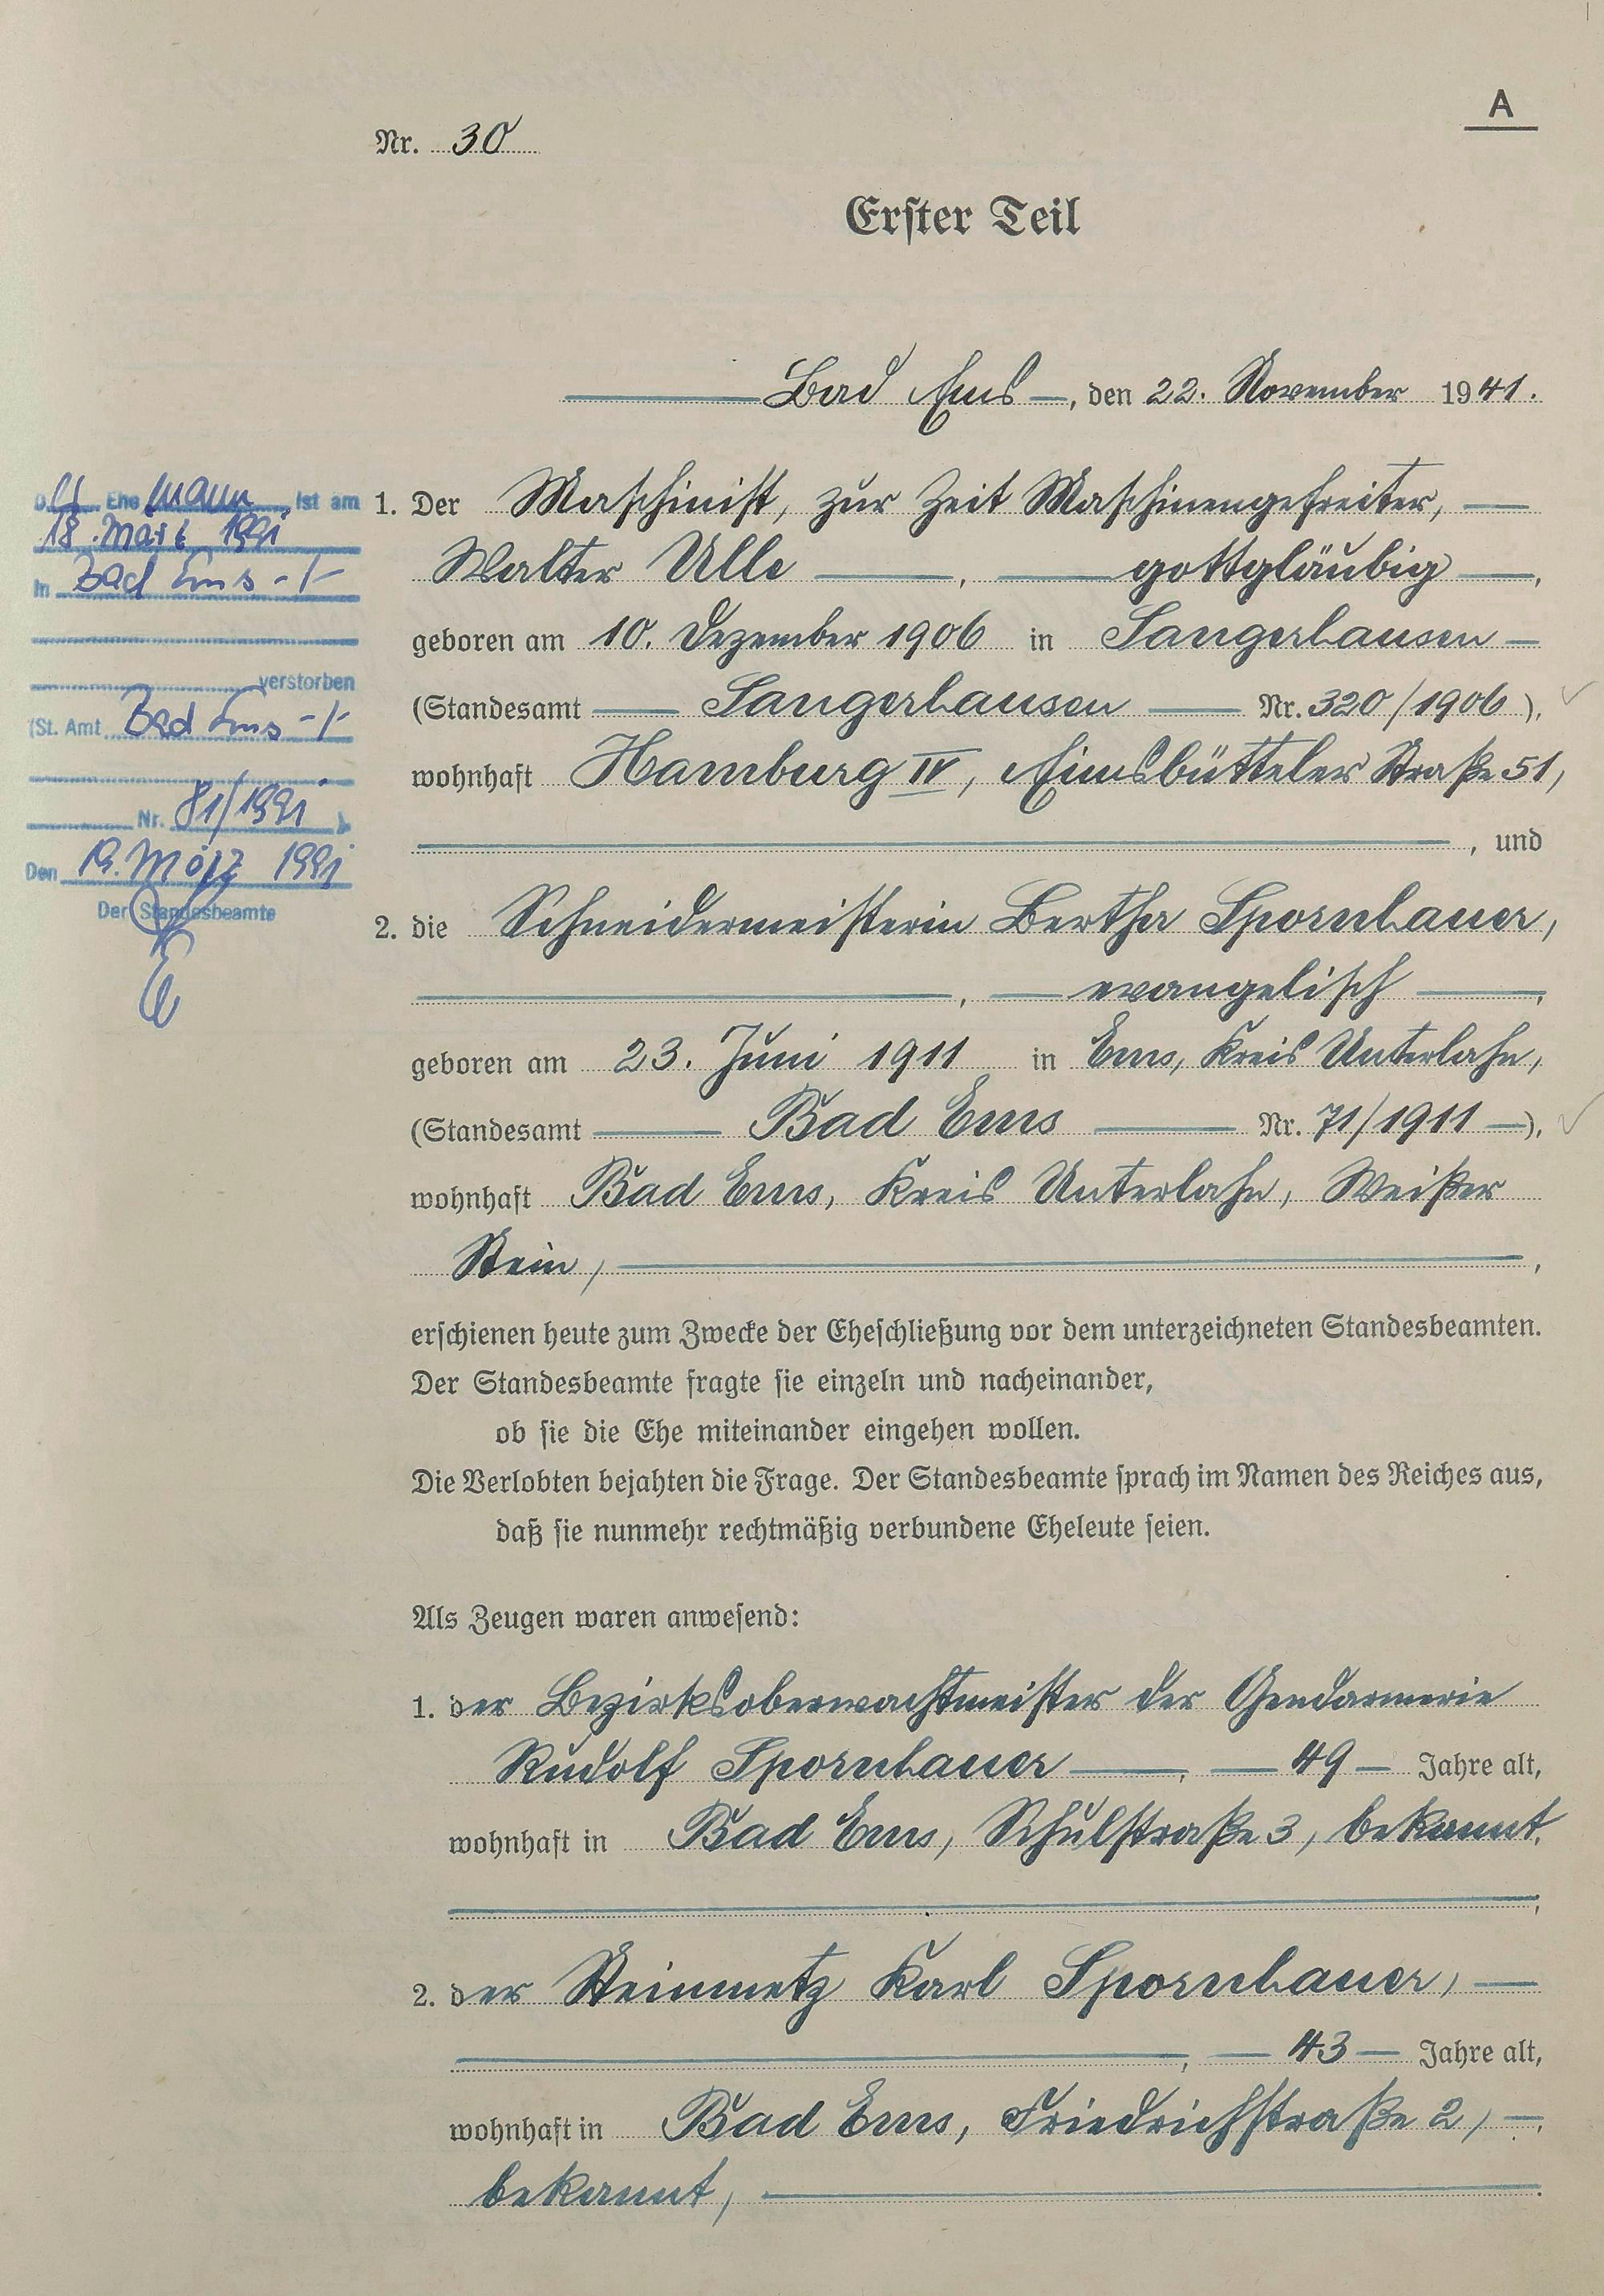 A
Nr. 30
Erster Teil
Bad Ems, den 22. November 1941.
1. Der Maschinist, zur Zeit Maschinengefreiter,
Walter Ulle, gottgläubig,
geboren am 10. Dezember 1906 in Sangerhausen
(Standesamt Sangerhausen Nr. 320/1906),
wohnhaft Hamburg IV, Eimsbütteler Straße 51,
, und
2. die Schneidermeisterin Bertha Spornhauer,
, evangelisch,
geboren am 23. Juni 1911 in Ems, Kreis Unterlahn,
(Standesamt Bad Ems Nr. 71/1911),
wohnhaft Bad Ems, Kreis Unterlahn, Weißer
Stein,
erschienen heute zum Zwecke der Eheschließung vor dem unterzeichneten Standesbeamten.
Der Standesbeamte fragte sie einzeln und nacheinander,
ob sie die Ehe miteinander eingehen wollen.
Die Verlobten bejahten die Frage. Der Standesbeamte sprach im Namen des Reiches aus,
daß sie nunmehr rechtmäßig verbundene Eheleute seien.
Als Zeugen waren anwesend:
1. der Bezirksoberwachtmeister der Gendarmerie
Rudolf Spornhauer, 49 Jahre alt,
wohnhaft in Bad Ems, Schulstraße 3, bekannt,
;
2. der Steinmetz Karl Spornhauer,
, 43 Jahre alt,
wohnhaft in Bad Ems, Friedrichstraße 2,
bekannt, .
Der Ehemann ist am
18. März 1991
in Bad Ems -/-
verstorben
(St. Amt Bad Ems -/-
Nr. 81/1991 )
Den 19. März 1991
Der Standesbeamte